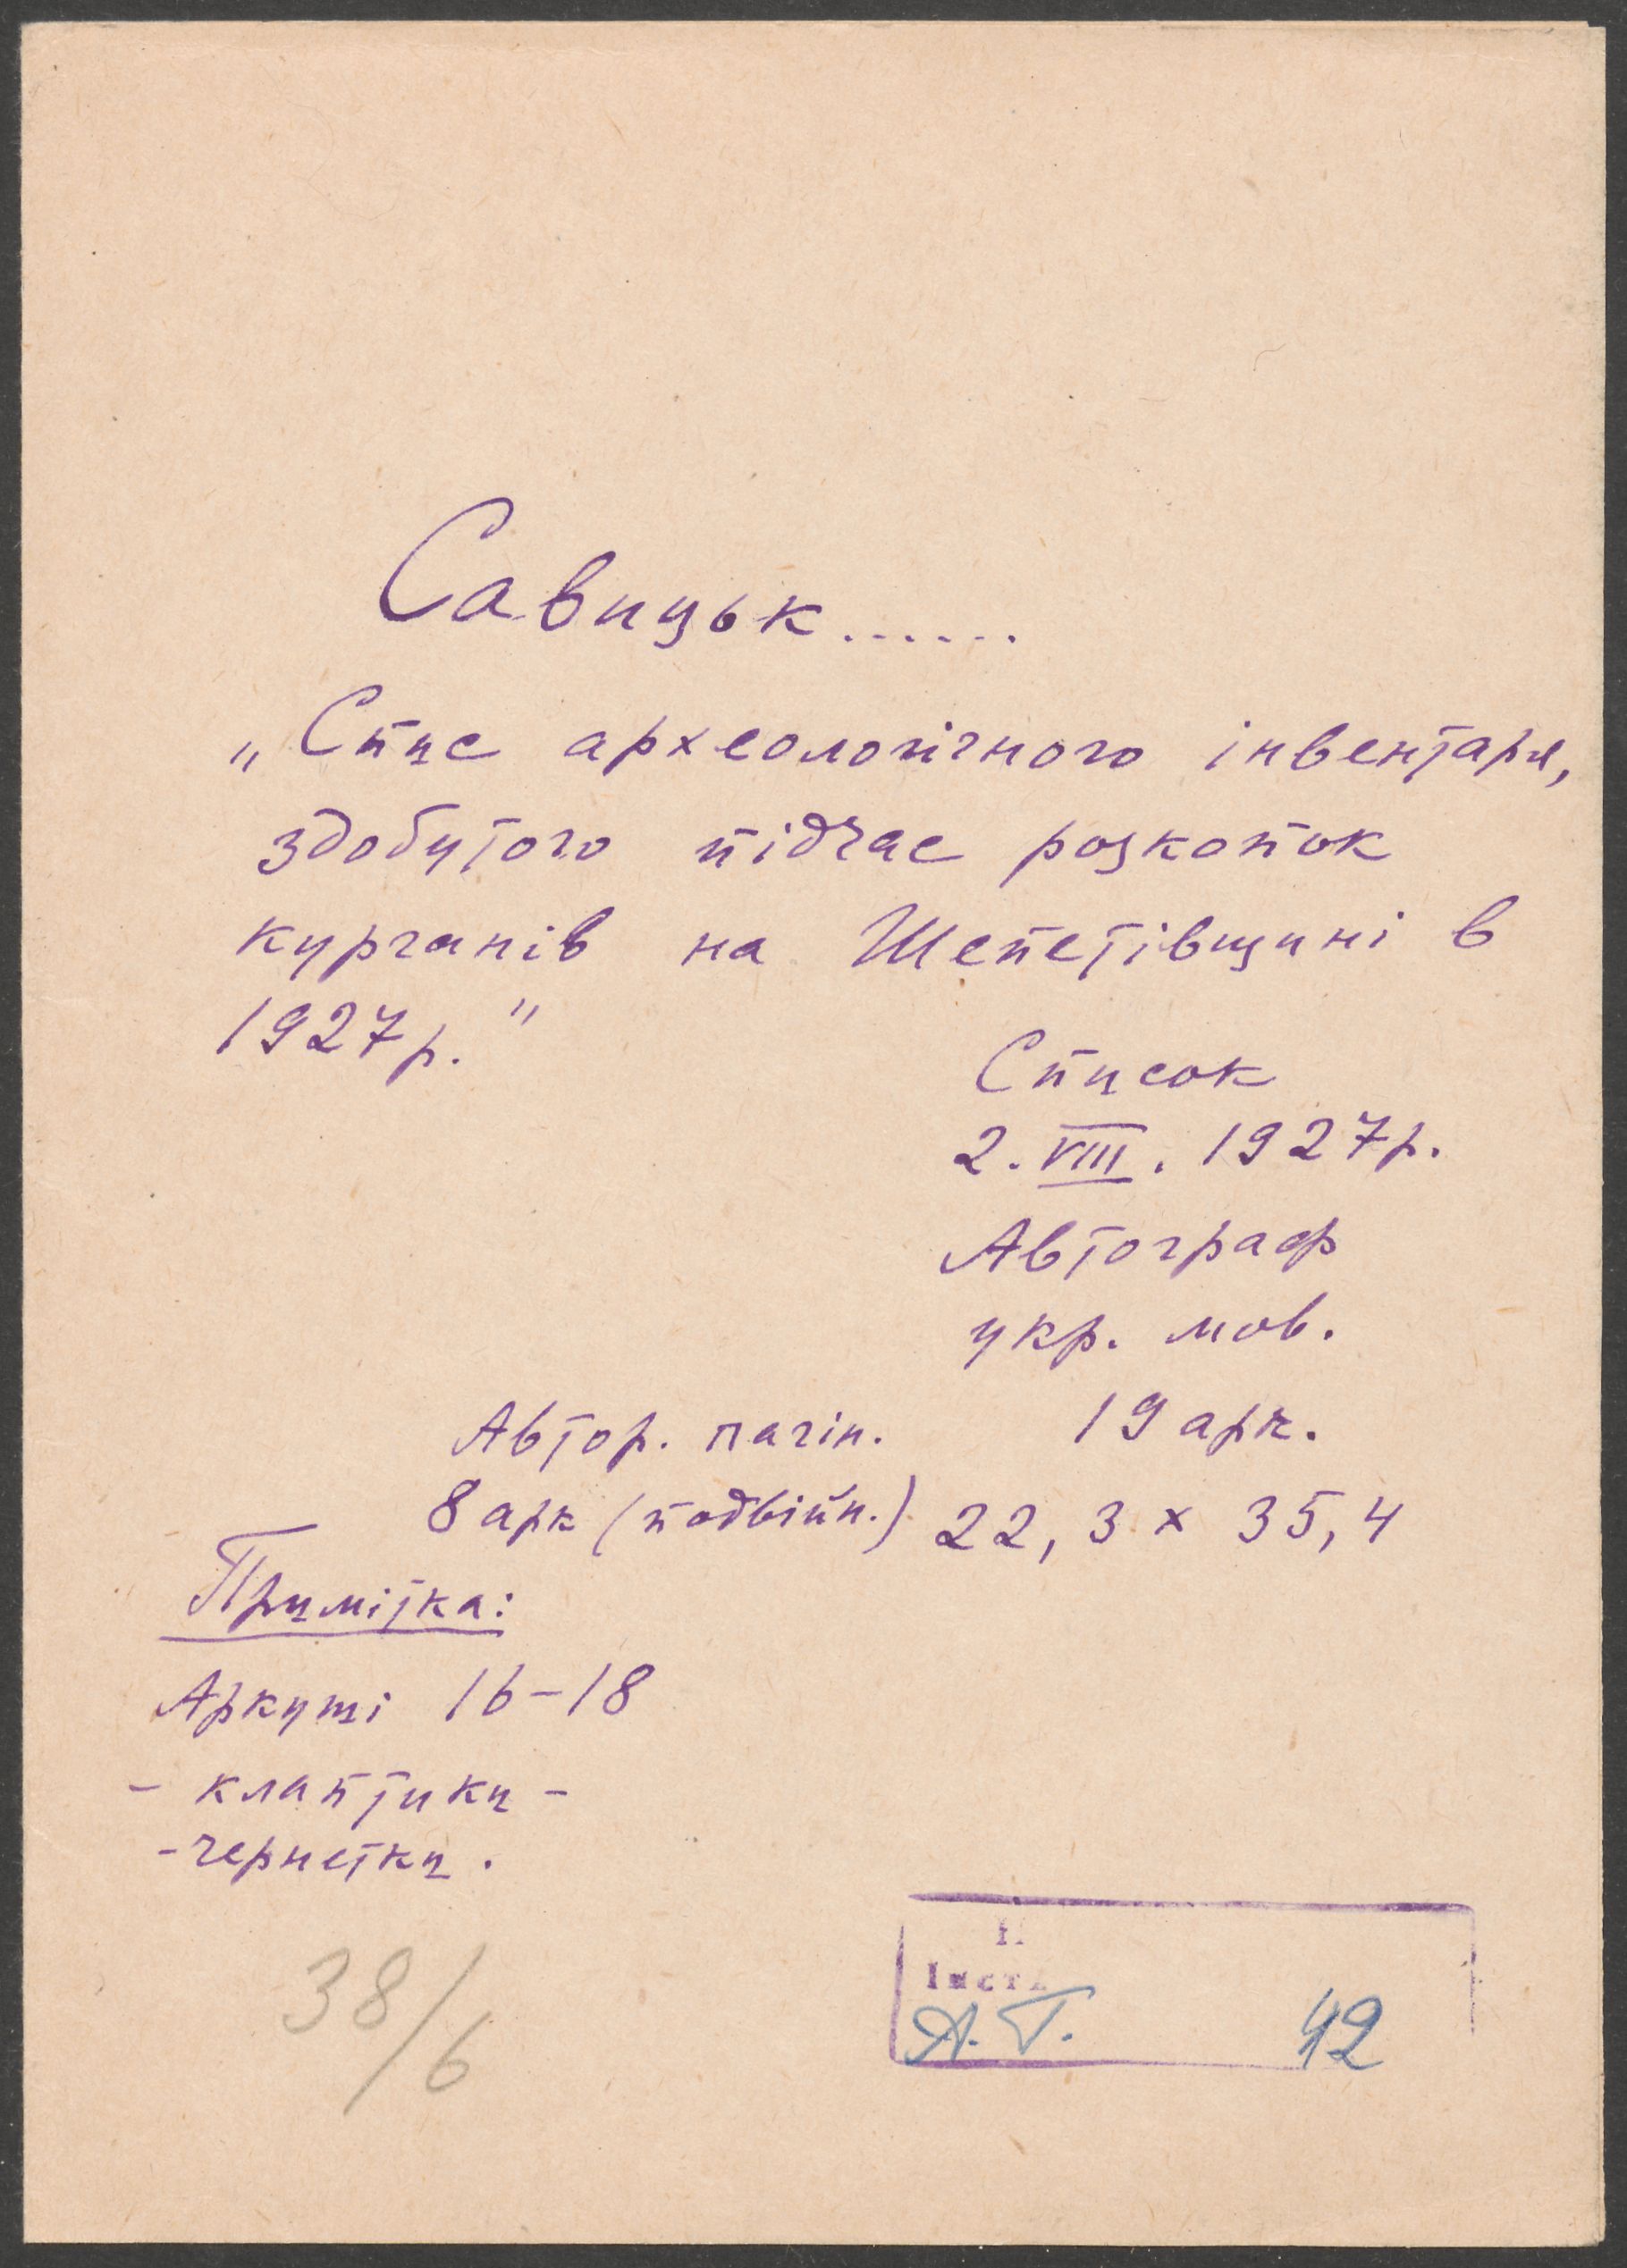 Савицьк......
„Спис археологічного інвентаря,
здобутого підчас розкопок
курганів на Шепетівщині в
1927р."
Список
2. VIII. 1927р.
Автограф
укр. мов.
19 арк.
Автор. пагін.
8 арк (подвійн.) 22,3 x 35,4
Примітка:
Аркуші 16-18
- клаптики -
- чернетки.
38/6
А. Г. 42